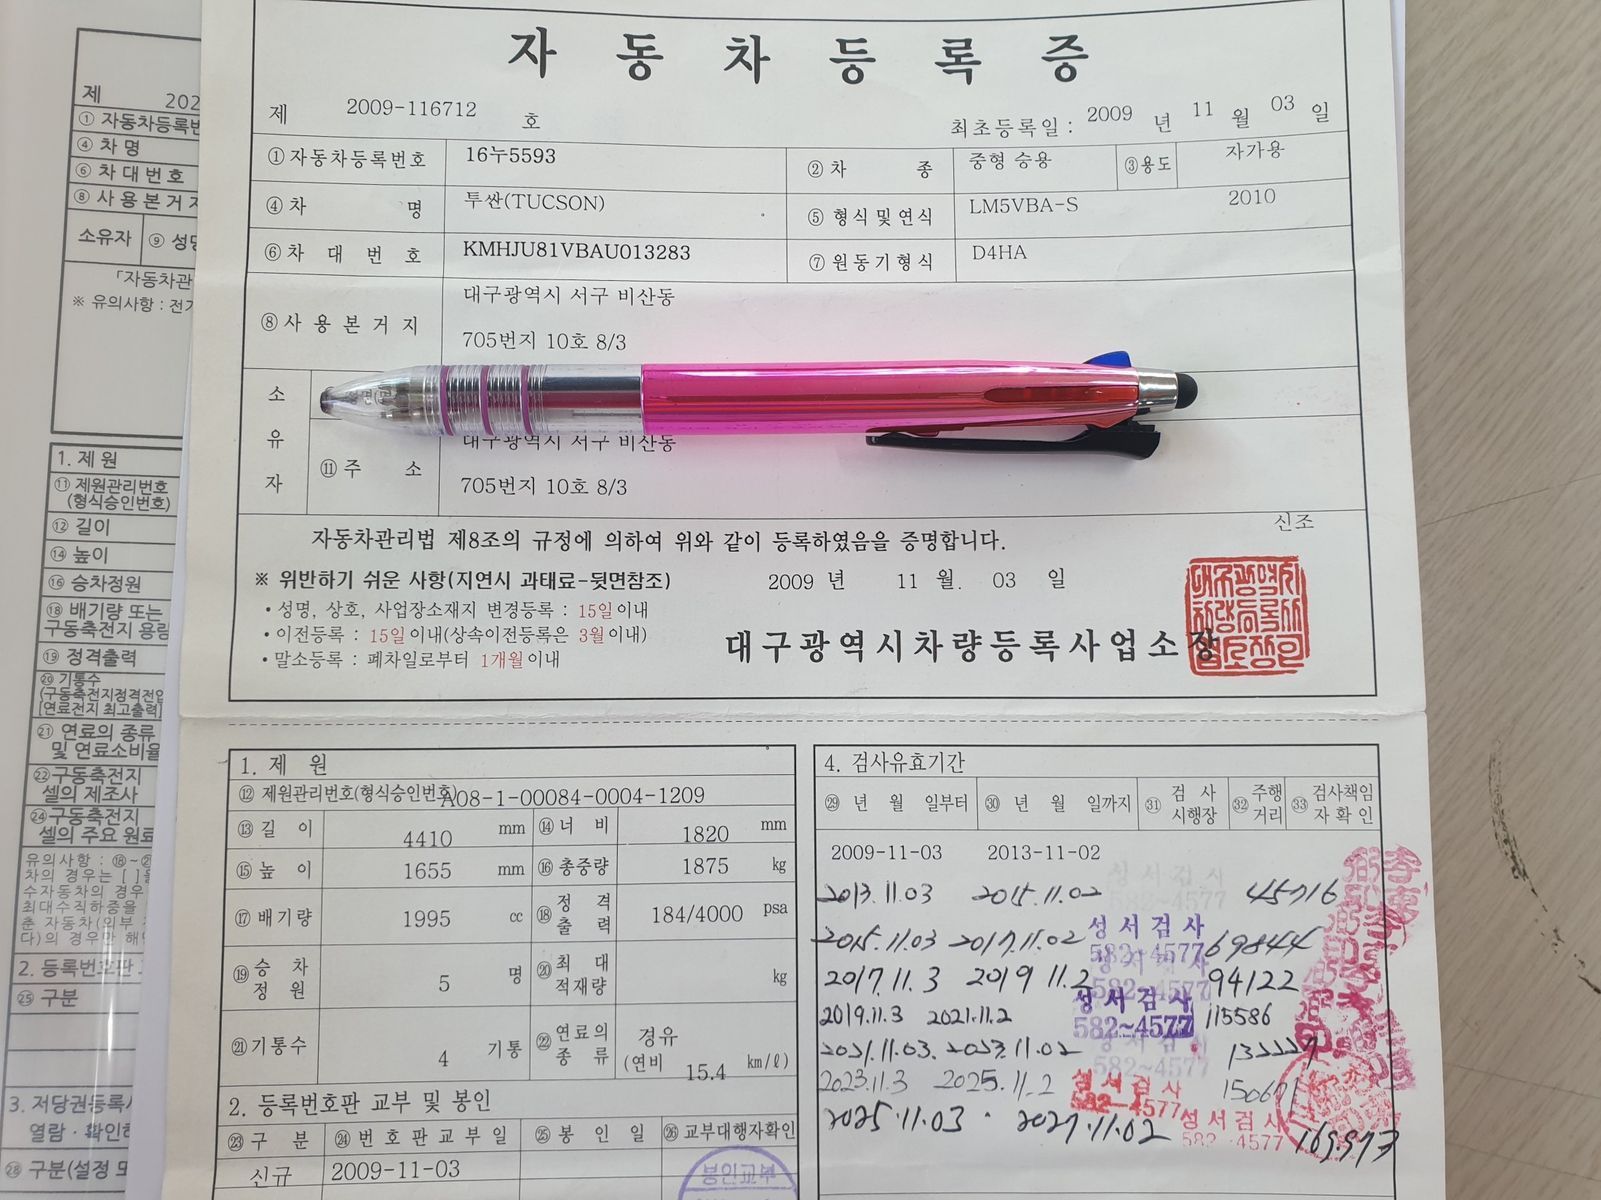 자동차등록증
제 2009-116712 호
최초등록일 : 2009 년 11 월 03 일
①자동차등록번호 16누5593 ②차 종 중형 승용 ③용도 자가용
④차 명 투싼(TUCSON) ⑤형식 및 연식 LM5VBA-S 2010
⑥차 대 번 호 KMHJU81VBAU013283 ⑦원동기형식 D4HA
⑧사 용 본 거 지 대구광역시 서구 비산동
705번지 10호 8/3
소유자
⑪주 소 대구광역시 서구 비산동
705번지 10호 8/3
신조
자동차관리법 제8조의 규정에 의하여 위와 같이 등록하였음을 증명합니다.
※ 위반하기 쉬운 사항(지연시 과태료-뒷면참조) 2009 년 11 월. 03 일
• 성명, 상호, 사업장소재지 변경등록 : 15일이내
• 이전등록 : 15일이내(상속이전등록은 3월이내)
• 말소등록 : 폐차일로부터 1개월이내
대구광역시차량등록사업소장
1. 제 원
⑫ 제원관리번호(형식승인번호) A08-1-00084-0004-1209
⑬길 이 4410 mm ⑭너 비 1820 mm
⑮높 이 1655 mm ⑯총중량 1875 kg
⑰배기량 1995 cc ⑱정격출력 184/4000 psa
⑲승차정원 5 명 ⑳최대적재량 kg
㉑기통수 4 기통 ㉒연료의 종류 경유 (연비 15.4 km/ℓ)
2. 등록번호판 교부 및 봉인
㉓구 분 ㉔번호판교부일 ㉕봉 인 일 ㉖교부대행자확인
신규 2009-11-03
봉인교부
4. 검사유효기간
㉙ 년 월 일부터 ㉚ 년 월 일까지 ㉛ 검사시행장 ㉜ 주행거리 ㉝ 검사책임자확인
2009-11-03 2013-11-02
2013.11.03 2015.11.02 성서검사 582-4577 45716
2015.11.03 2017.11.02 성서검사 582-4577 69844
2017.11.3 2019 11.2 94122
2019.11.3 2021.11.2 성서검사 582-4577 115586
2021.11.03. 2023.11.02
2023.11.3 2025.11.2 성서검사 582-4577
2025.11.03 . 2027.11.02 성서검사 582-4577 169.973
제 202
① 자동차등록번
④ 차 명
⑥ 차 대 번 호
⑧ 사 용 본 거 지
소유자 ⑨ 성명
「자동차관
※ 유의사항 : 전기
1. 제 원
⑪ 제원관리번호
(형식승인번호)
⑫ 길이
⑭ 높이
⑯ 승차정원
⑱ 배기량 또는
구동축전지 용량
⑲ 정격출력
⑳ 기통수
(구동축전지정격전압)
[연료전지 최고출력]
㉑ 연료의 종류
및 연료소비율
㉒구동축전지
셀의 제조사
㉔구동축전지
셀의 주요 원료
유의사항 : ⑱~
차의 경우는 [ ]
수자동차의 경우
최대수직하중을
춘 자동차(외부
다)의 경우만 해
2. 등록번호판
㉕ 구분
3. 저당권등록사
열람 · 확인하
㉘ 구분(설정 또